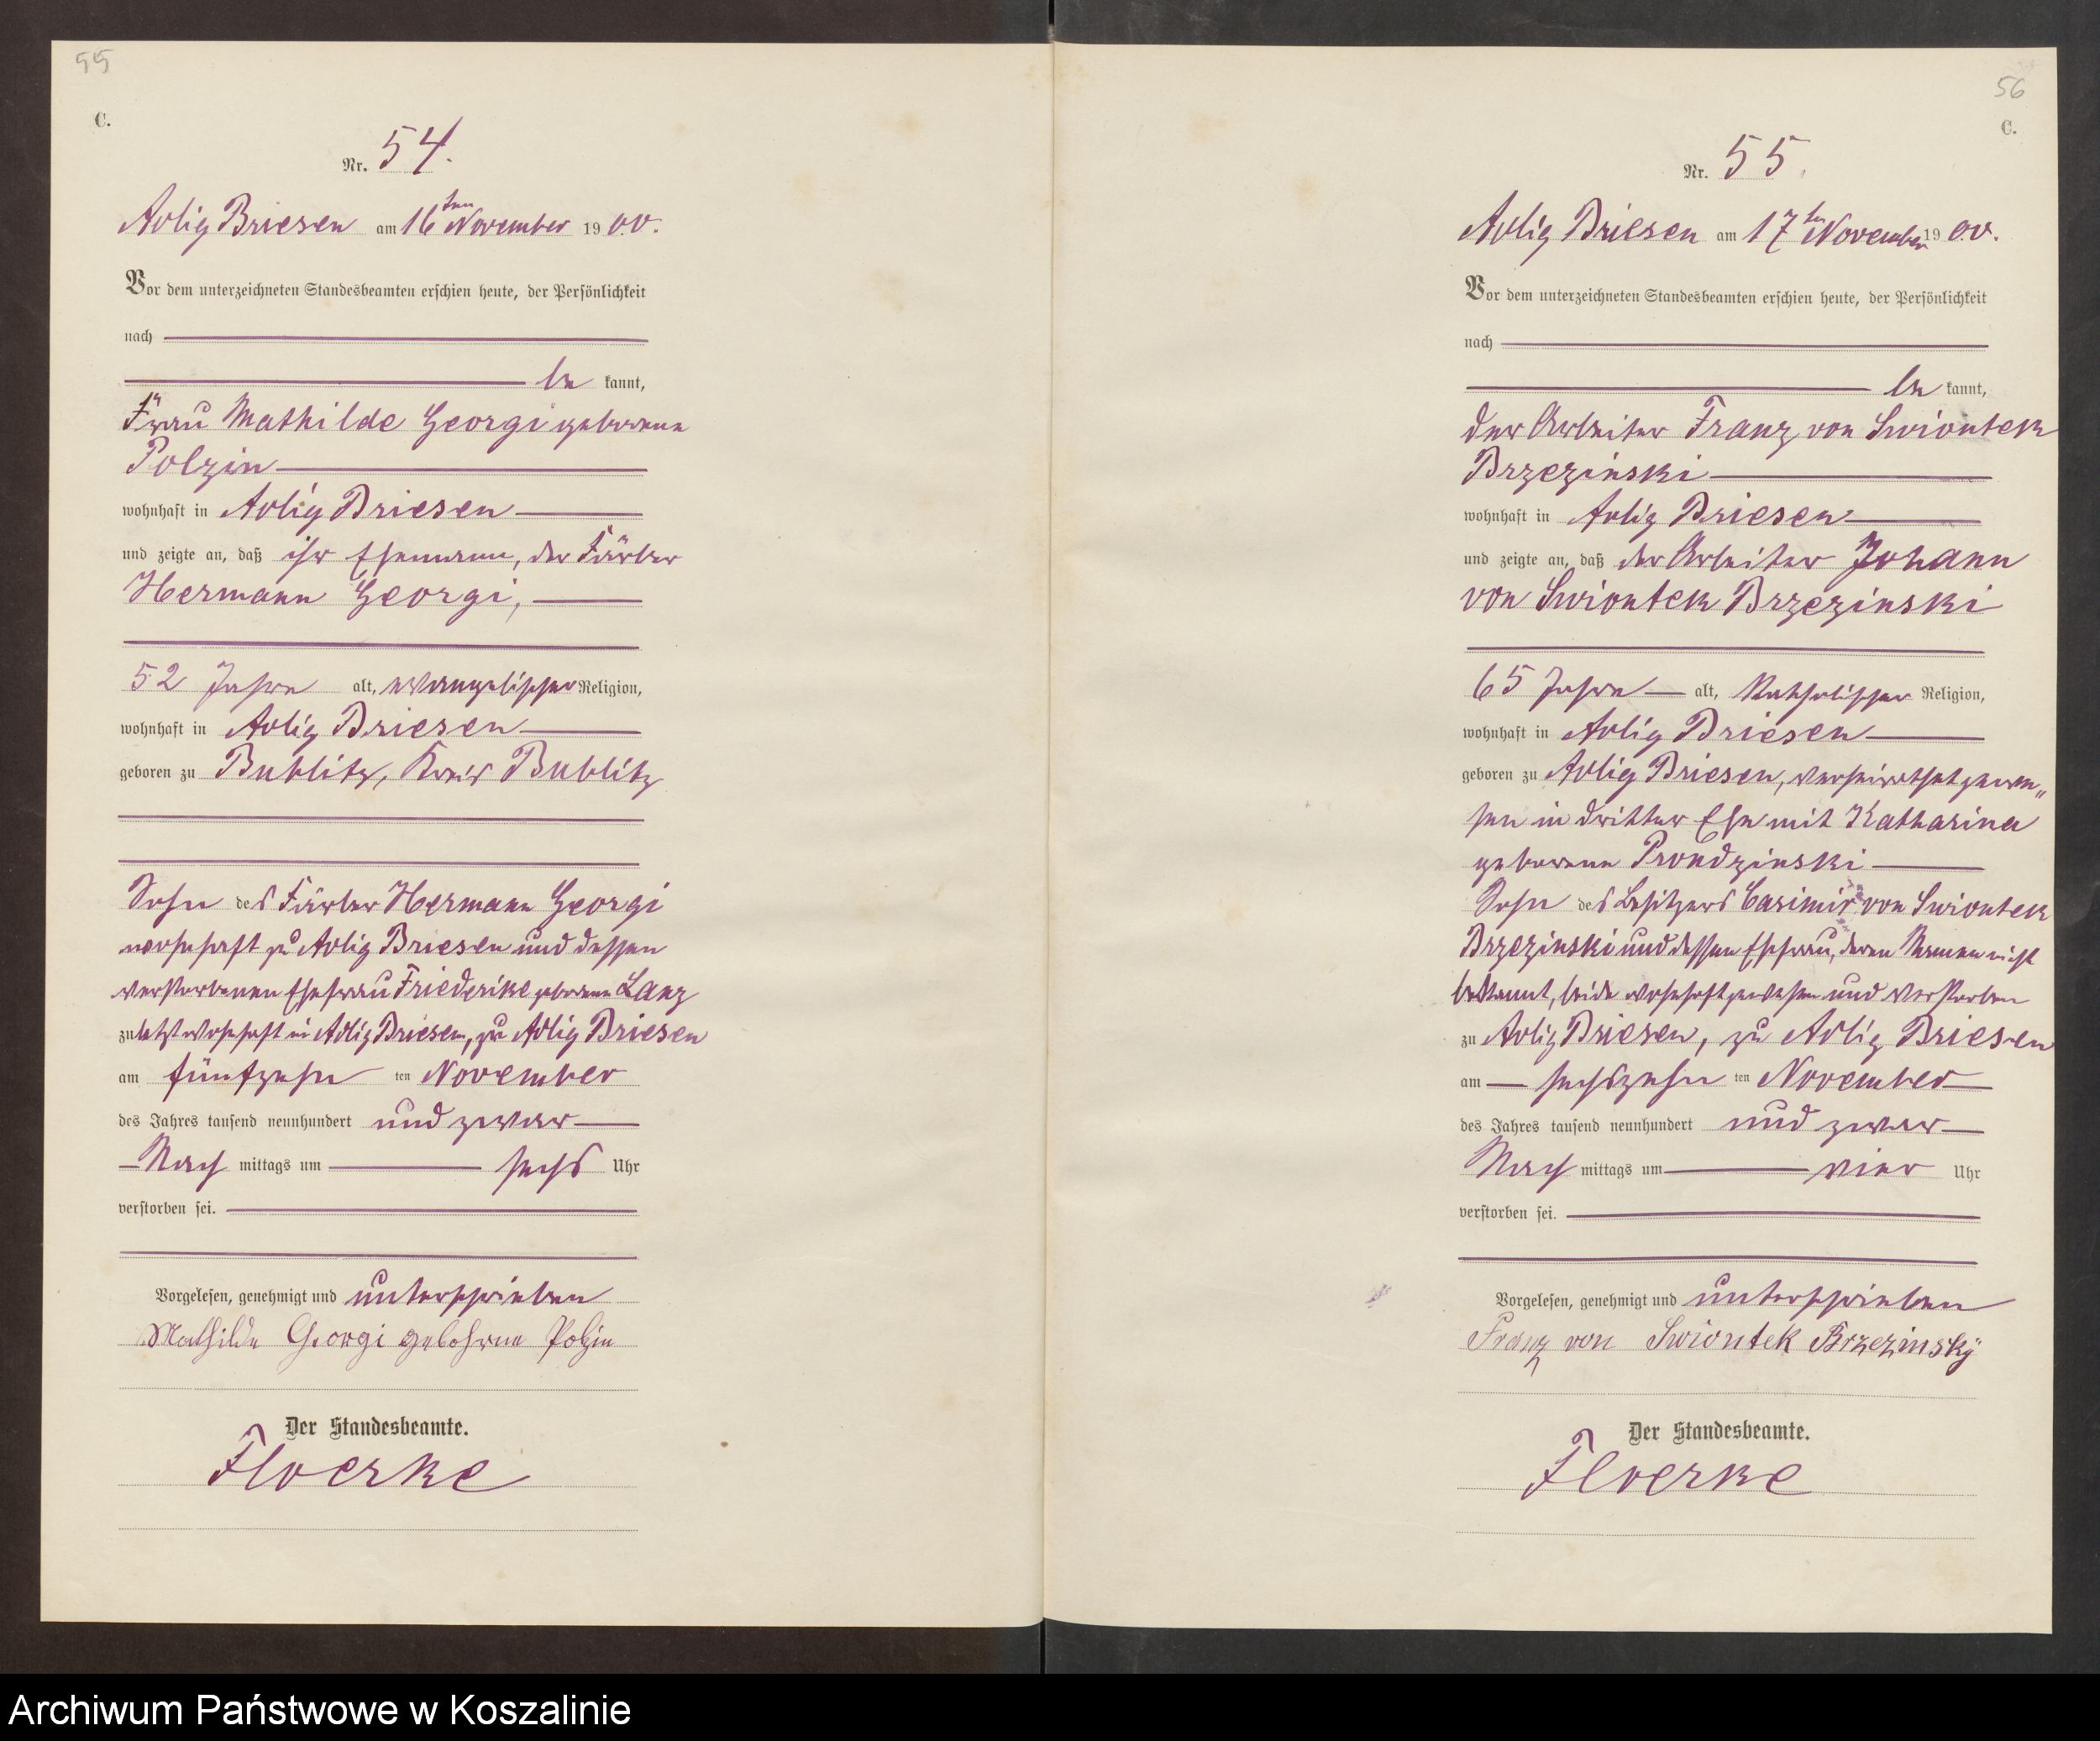 55
C.
Nr. 54.
Adlig Briesen am 16ten November 1900.
Vor dem unterzeichneten Standesbeamten erschien heute, der Persönlichkeit
nach
be kannt,
Frau Mathilde Georgi geborene
Polzin
wohnhaft in Adlig Briesen
und zeigte an, daß ihr Ehemann, der Färber
Hermann Georgi,
52 Jahre alt, evangelischer Religion,
wohnhaft in Adlig Briesen
geboren zu Bublitz, Kreis Bublitz
Sohn des Färber Hermann Georgi
wohnhaft zu Adlig Briesen und dessen
verstorbenen Ehefrau Friederike geborene Lanz
zuletzt wohnhaft in Adlig Briesen, zu Adlig Briesen
am fünfzehn ten November
des Jahres tausend neunhundert und zwar
Nach mittags um sechs Uhr
verstorben sei.
Vorgelesen, genehmigt und unterschrieben
Mathilde Georgi gebohrene Polzin
Der Standesbeamte.
Floerke
56
C.
Nr. 55.
Adlig Briesen am 17ten November 1900.
Vor dem unterzeichneten Standesbeamten erschien heute, der Persönlichkeit
nach
be kannt,
der Arbeiter Franz von Swiontek
Brzezinski
wohnhaft in Adlig Briesen
und zeigte an, daß der Arbeiter Johann
von Swiontek Brzezinski
65 Jahre alt, katholischer Religion,
wohnhaft in Adlig Briesen
geboren zu Adlig Briesen, verheirathet gewe„
sen in dritter Ehe mit Katharina
geborene Prondzinski
Sohn des Besitzers Casimir von Swiontek
Brzezinski und dessen Ehefrau, deren Namen nicht
bekannt, beide wohnhaft gewesen und verstorben
zu Adlig Briesen, zu Adlig Briesen
am sechszehn ten November
des Jahres tausend neunhundert und zwar
Nach mittags um vier Uhr
verstorben sei.
Vorgelesen, genehmigt und unterschrieben
Franz von Swiontek Brzezinsky
Der Standesbeamte.
Floerke
Archiwum Państwowe w Koszalinie